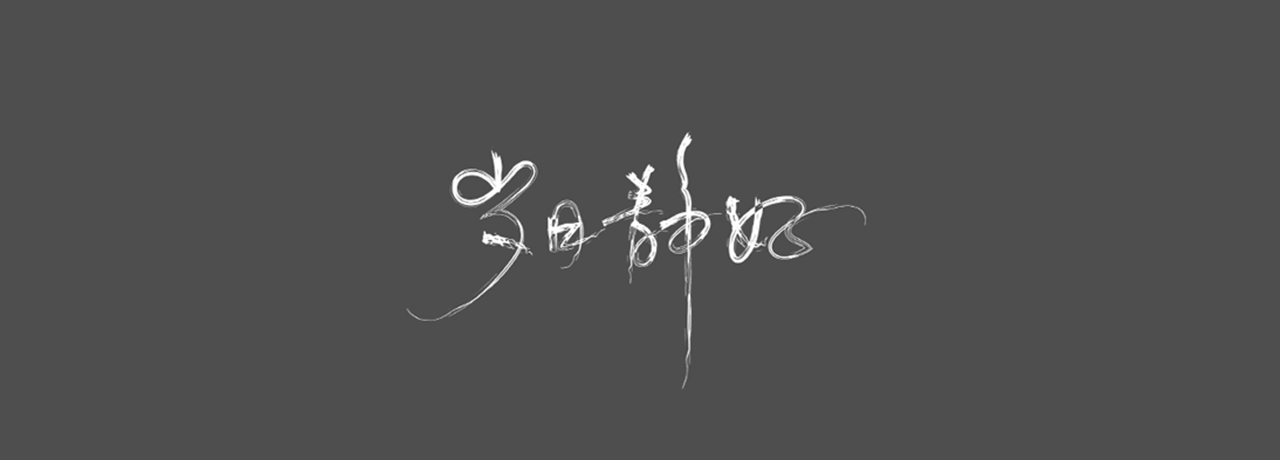 岁月静好